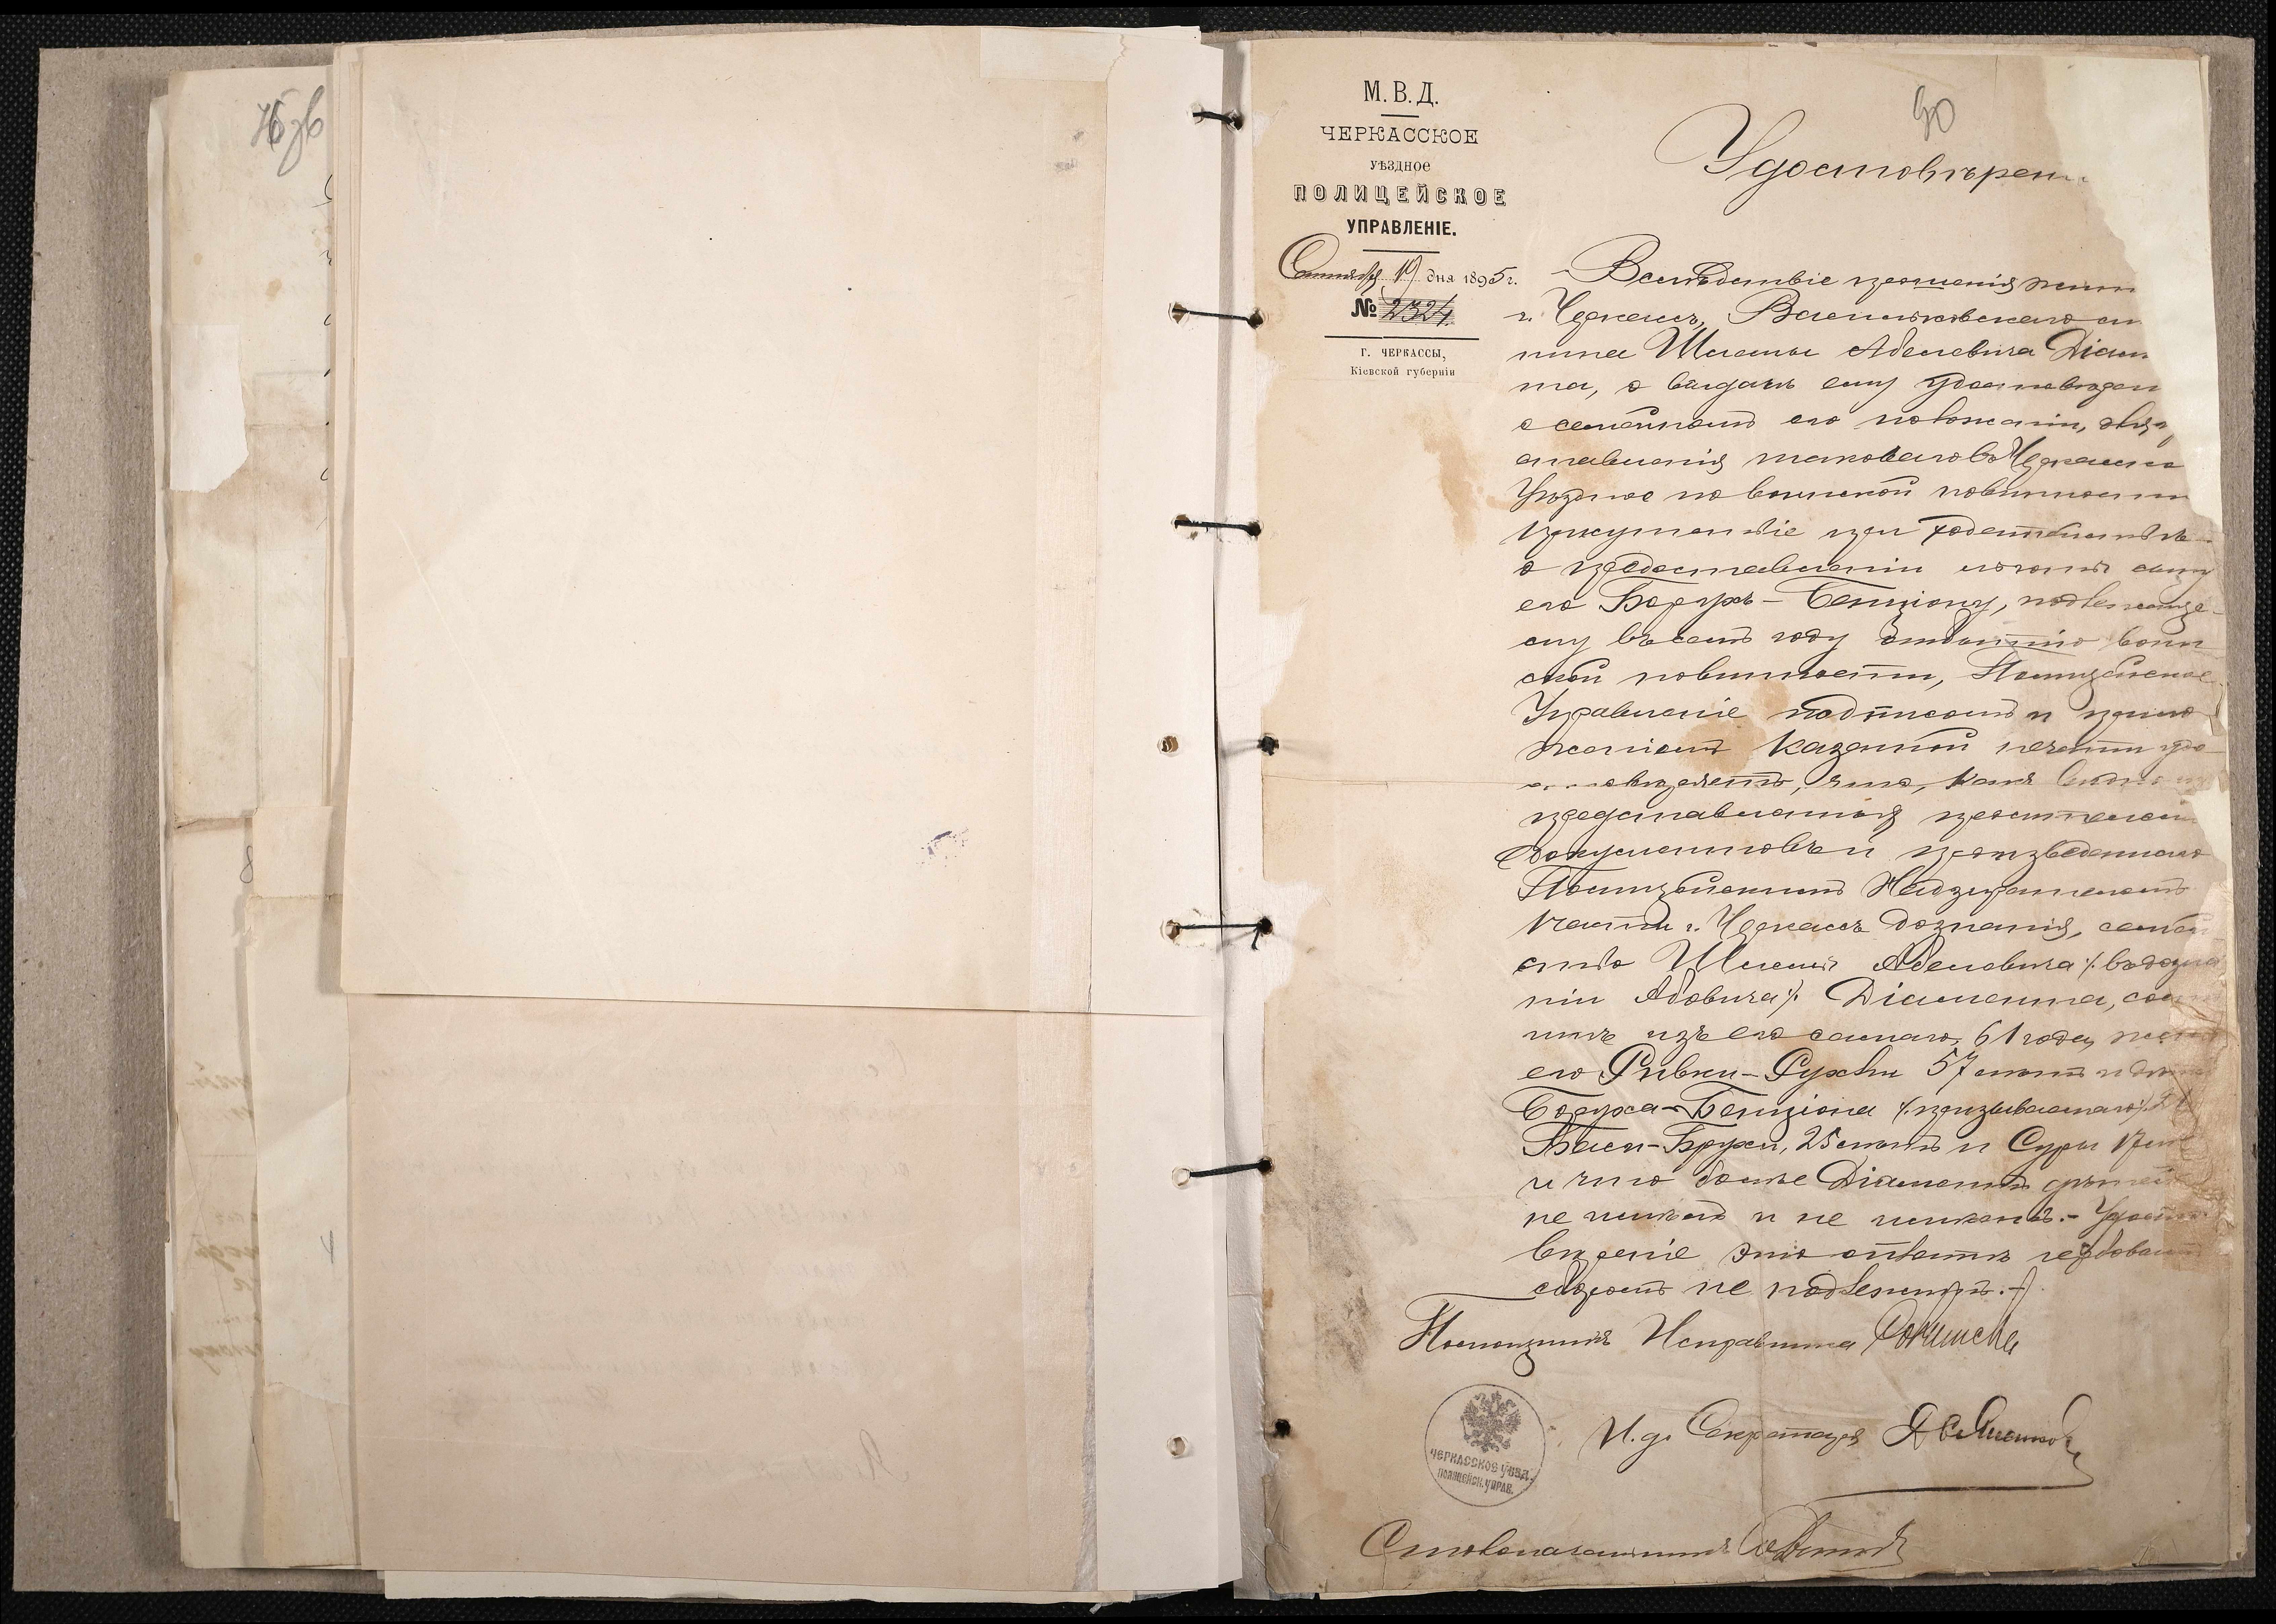 90
М. В. Д.
ЧЕРКАССКОЕ
УѢЗДНОЕ
ПОЛИЦЕЙСКОЕ
УПРАВЛЕНІЕ.
Сентября 19 дня 1895 г.
№ 2324.
Г. ЧЕРКАССЫ,
Кіевской губерніи
Удостовѣрен
Вслѣдствіе прошенія жит
г. Черкассъ, Васильковскаго
нина Шлемы Абелевича Діам
та, о выдачѣ ему удостовѣрен
о семейномъ его положеніи, для
ставленія таковаго въ Черкасско
Уѣздное по воинской повинности
Присутствіе при ходатайствѣ
о предоставленіи льготы сыну
его Борухъ-Бенціону, подлежаще-
му въ семъ году отбытію воин
ской повинности, Полицейское
Управленіе подписомъ и прило
женіемъ казенной печати удо
стовѣряетъ, что, какъ видно из
представленныхъ просителемъ
документовъ и произведеннаго
Полицейскимъ Надзирателемъ
1 части г. Черкассъ дознанія, семей
ство Шлемы Абелевича /:въ дозна
ніи Абовича:/ Діаманта, сос
итъ изъ его самаго, 61 года, жены
его Ривки-Рухли 57 лѣтъ и
Боруха-Бенціона /:призываемаго:/ 21
Баси-Брухи, 25 лѣтъ и Суры 17 лѣ
и что болѣе Діамантъ дѣтей
не имѣетъ и не имѣлъ.- Удосто
вѣреніе это оплатѣ гербовымъ
сборомъ не подлежитъ.-
Помощникъ Исправника
И. д. Секретаря
ЧЕРКАССКОЕ УѢЗД.
ПОЛИЦЕЙСК. УПРАВ.
Столоначальникъ